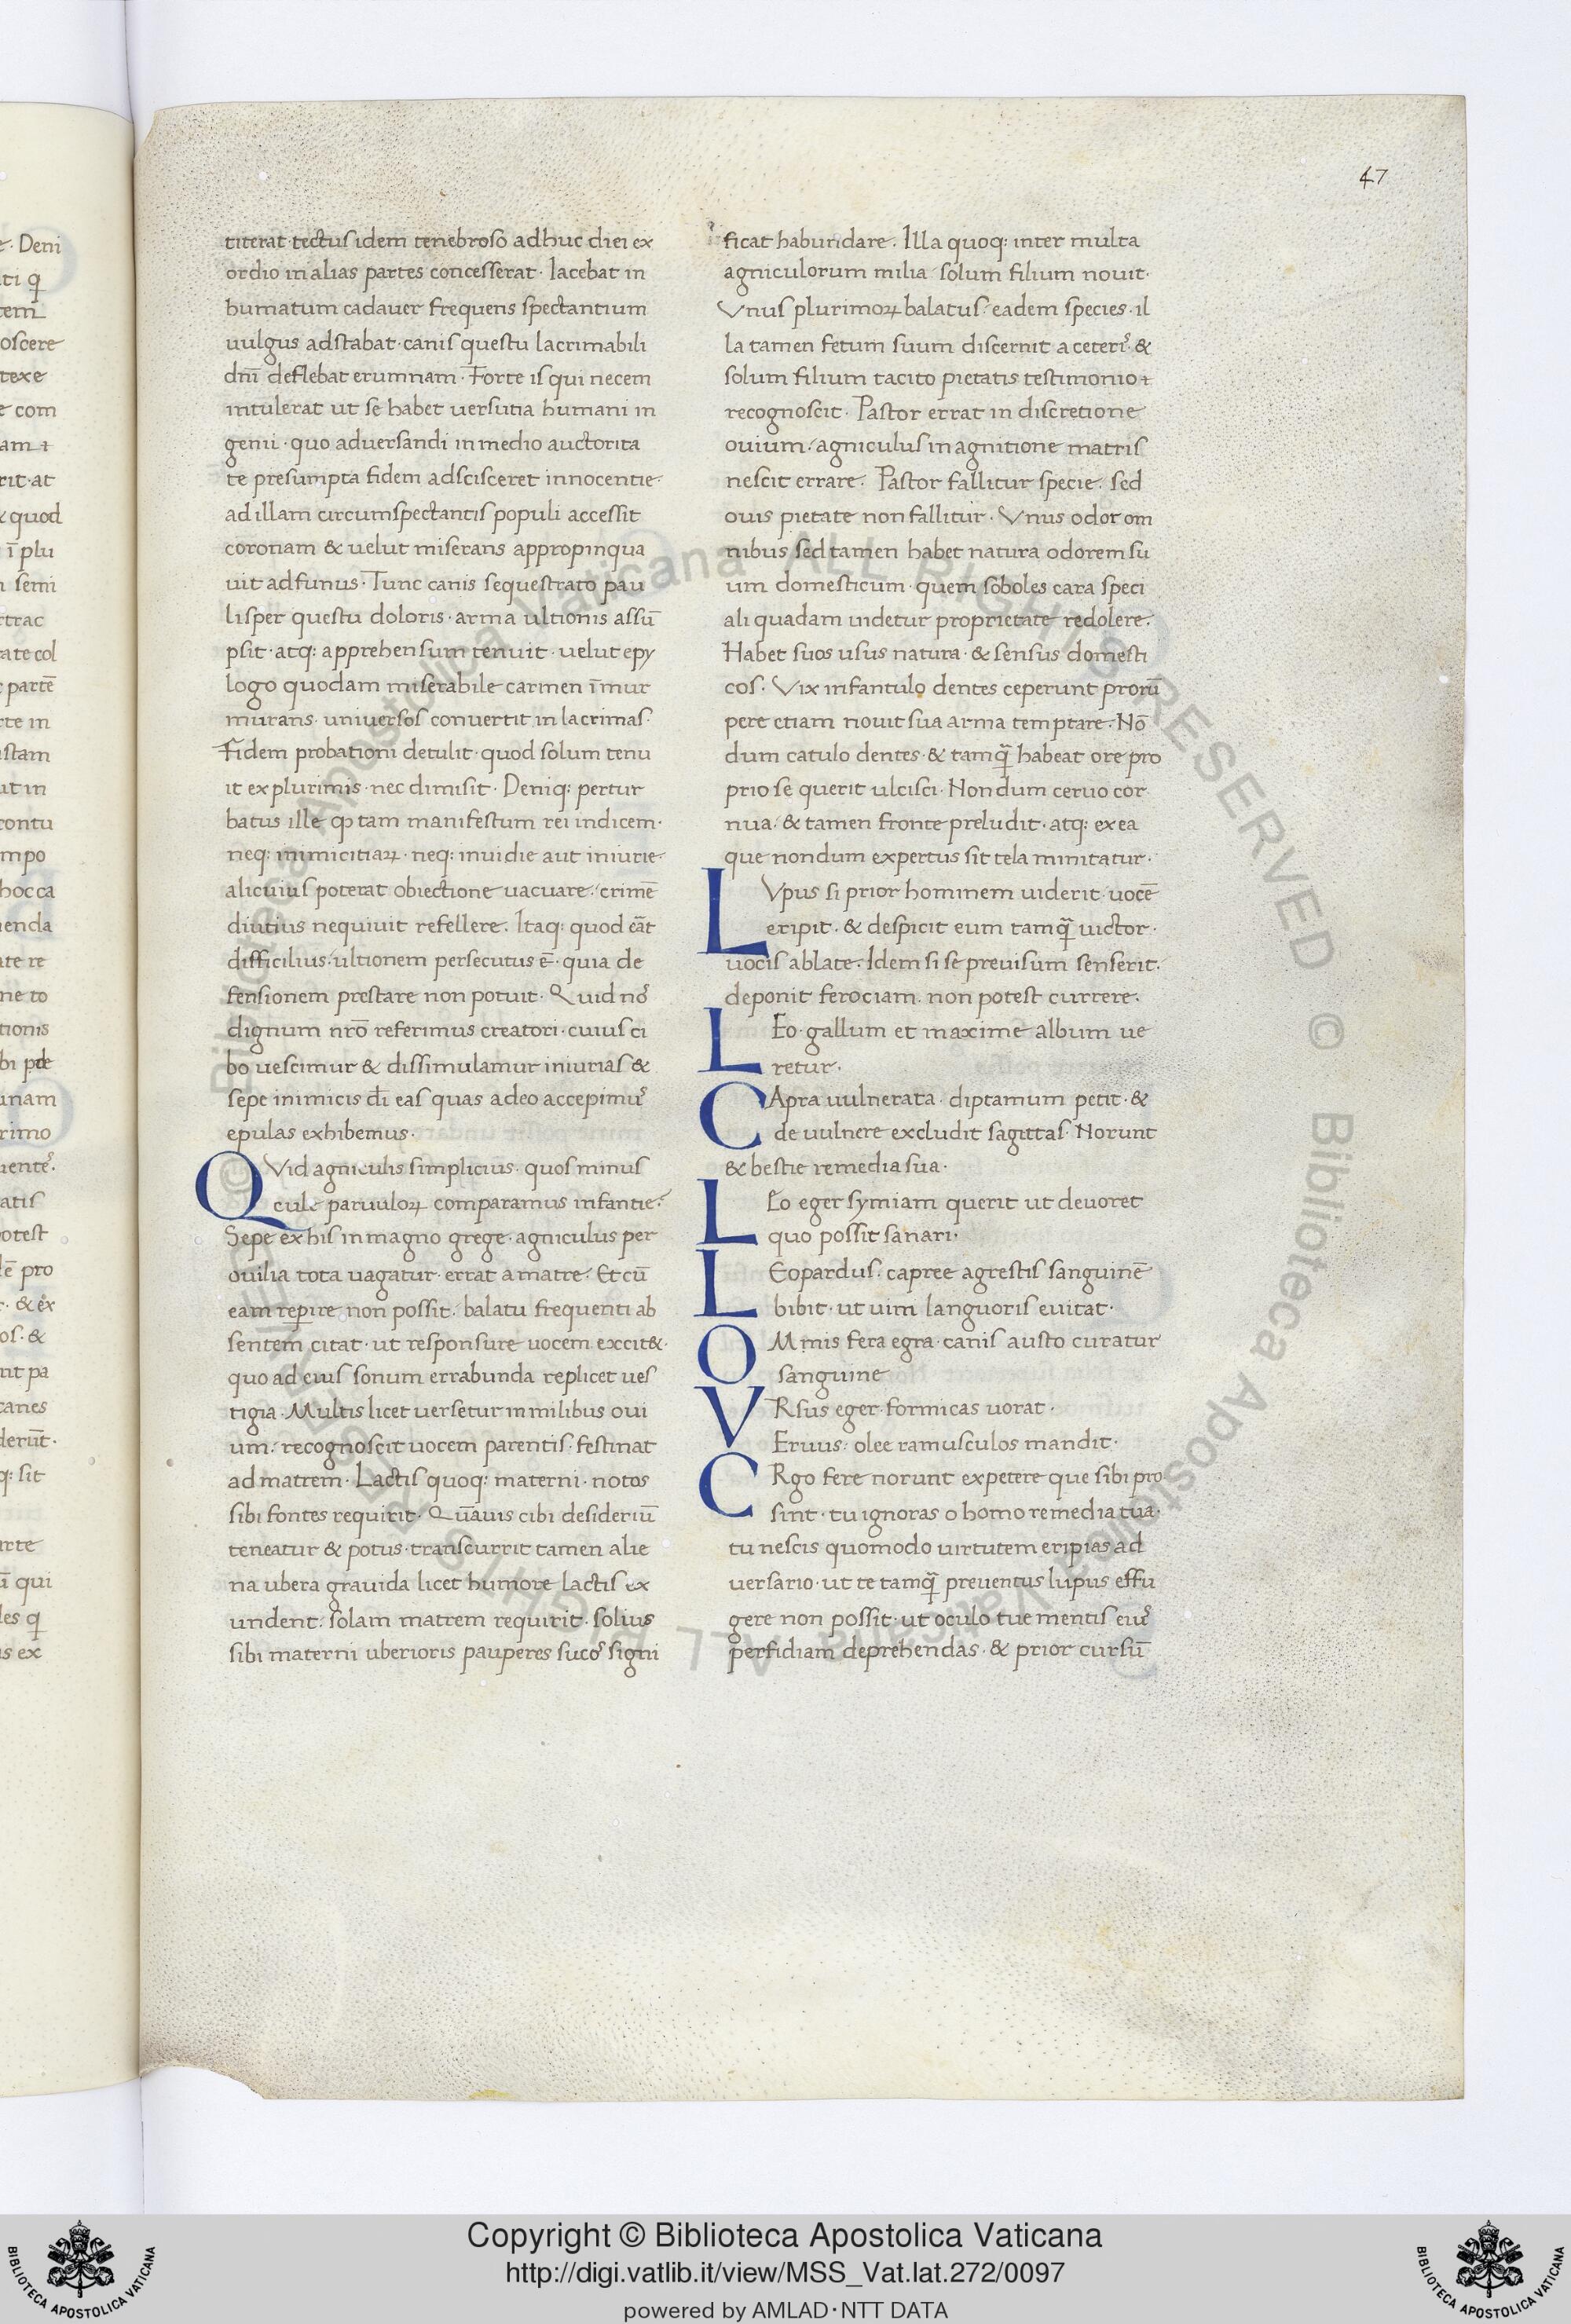 47
titerat·tectus idem tenebroso adhuc diei ex
ordio in alias partes concesserat· Iacebat in
humatum cadauer frequens spectantium
uulgus adstabat·canis questu lacrimabili
dnī deflebat erumnam· Forte is qui necem
intulerat ut se habet uersutia humani in
genii·quo aduersandi in medio auctorita
te presumpta fidem adscisceret innocentie·
ad illam circumspectantis populi accessit
coronam & uelut miserans appropinqua
uit ad funus· Tunc canis sequestrato pau
lisper questu doloris·arma ultionis assū
psit·atq: apprehensum tenuit·uelut epy
logo quodam miserabile carmen īmur
murans·universos convertit in lacrimas·
Fidem probationi detulit·quod solum tenu
it ex plurimis·nec dimisit· Deniq: pertur
batus ille ꝙ tam manifestum rei indicem·
neq: inimicitiaꝝ·neq: inuidie aut iniurie·
alicuius poterat obiectione uacuare: crimē
diutius nequiuit refellere. Itaq: quod eāt
difficilius·ultionem persecutus ē·quia de
fensionem prestare non potuit· Quid nō
dignum nr̄o referimus creatori·cuius ci
bo uescimur & dissimulamur iniurias &
sepe inimicis dī eas quas a deo accepimꝰ
epulas exhibemus·
QVid agniculis simplicius·quos minus
cule paruuloꝝ comparamus infantie:
Sepe ex his in magno grege·agniculus per
ouilia tota uagatur·errat a matre. Et cū
eam reperire non possit: balatu frequenti ab
sentem citat·ut responsure uocem excit&·
quo ad eius sonum errabunda replicet ues
tigia·Multis licet uersetur in milibus oui
um: recognoscit uocem parentis·festinat
ad matrem· Lactis quoq: materni·notos
sibi fontes requirit· Quāuis cibi desideriū
teneatur & potus·transcurrit tamen alie
na ubera gravida licet humore lactis ex
undent: solam matrem requirit·solius
sibi materni uberioris pauperes sucos signi
ficat habundare. Illa quoq: inter multa
agniculorum milia·solum filium nouit·
Vnus plurimoꝝ balatus: eadem species·il
la tamen fetum suum discernit a ceterꝭ·&
solum filium tacito pietatis testimonio
recognoscit· Pastor errat in discretione
ouium: agniculus in agnitione matris
nescit errare. Pastor fallitur specie. sed
ouis pietate non fallitur· Vnus odor om
nibus sed tamen habet natura odorem su
um domesticum·quem soboles cara speci
ali quadam uidetur proprietate redolere.
Habet suos usus natura·& sensus domesti
cos· Vix infantulo dentes ceperunt prorū
pere etiam nouit sua arma temptare. Nō
dum catulo dentes·& tamq̄ habeat ore pro
prio se querit ulcisci· Nondum ceruo cor
nua·& tamen fronte preludit·atq: ex ea
que nondum expertus sit tela minitatur·
LVpus si prior hominem uiderit·uocē
eripit·& despicit eum tamq̄ uictor·
uocis ablate. Idem si se preuisum senserit.
deponit ferociam. non potest currere.
LEo·gallum et maxime album ue
retur.
CApra uulnerata·diptamum petit·&
de uulnere excludit sagittas· Norunt
& bestie remedia sua·
LEo eger symiam querit ut devoret
quo possit sanari·
LEopardus·capree agrestis sanguinē
bibit·ut uim languoris euitat·
OMnis fera egra·canis austo curatur
sanguine
VRsus eger·formicas uorat·
CEruus: olee ramusculos mandit·
Rgo fere norunt expetere que sibi pro
sint·tu ignoras o homo remedia tua·
tu nescis quomodo uirtutem eripias ad
uersario·ut te tamq̄ preuentus lupus effu
gere non possit·ut oculo tue mentis eiꝰ
perfidiam deprehendas·& prior cursū
Copyright © Biblioteca Apostolica Vaticana
http://digi.vatlib.it/view/MSS_Vat.lat.272/0097
powered by AMLAD·NTT DATA
BIBLIOTECA APOSTOLICA VATICANA
BIBLIOTECA APOSTOLICA VATICANA
© Biblioteca Apostolica Vaticana ALL RIGHTS RESERVED © Biblioteca Apostolica Vaticana ALL RIGHTS RESERVED